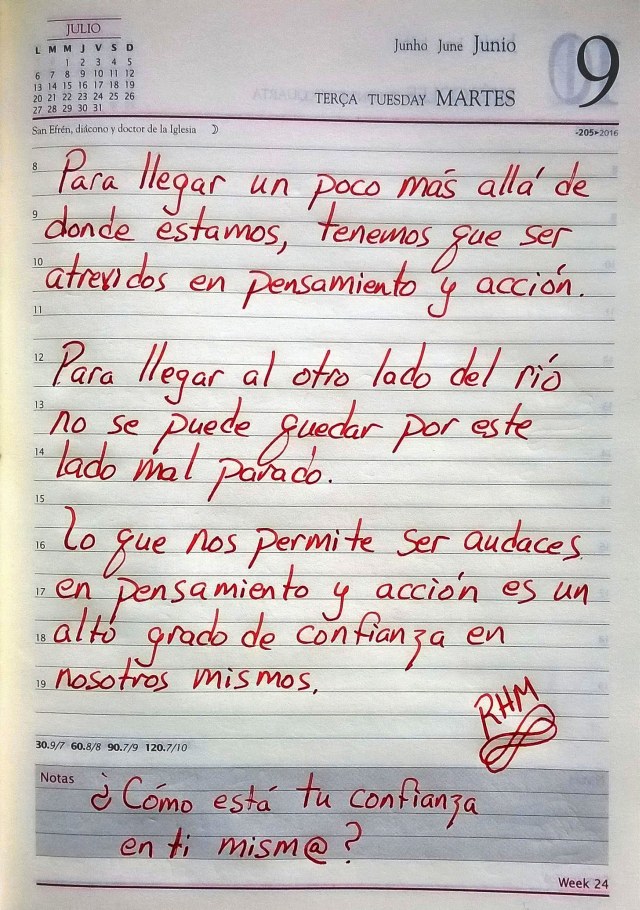 JULIO
L M M J V S D
1 2 3 4 5
6 7 8 9 10 11 12
13 14 15 16 17 18 19
20 21 22 23 24 25 26
27 28 29 30 31
Junho June Junio
9
TERÇA TUESDAY MARTES
San Efrén, diácono y doctor de la Iglesia
-205▸2016
8 Para llegar un poco más allá de
9 donde estamos, tenemos que ser
10 atrevidos en pensamiento y acción.
11
12 Para llegar al otro lado del río
13 no se puede quedar por este
14 lado mal parado.
15
16 Lo que nos permite ser audaces
17 en pensamiento y acción es un
18 alto grado de confianza en
19 nosotros mismos.
RHM
30.9/7 60.8/8 90.7/9 120.7/10
Notas
¿Cómo está tu confianza
en ti mism@?
Week 24